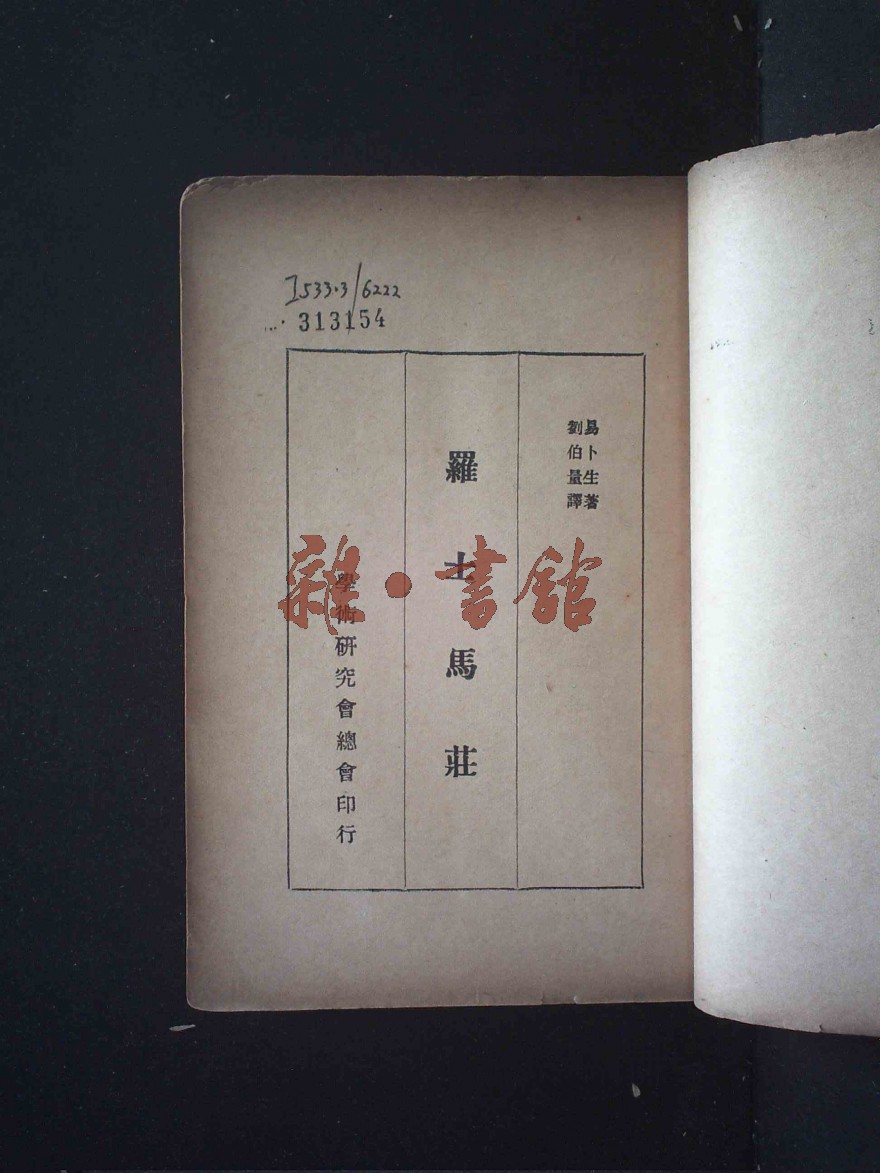 I533.3/6222
313154
易卜生著
劉伯量譯
羅士馬莊
學術研究會總會印行
雜·書館